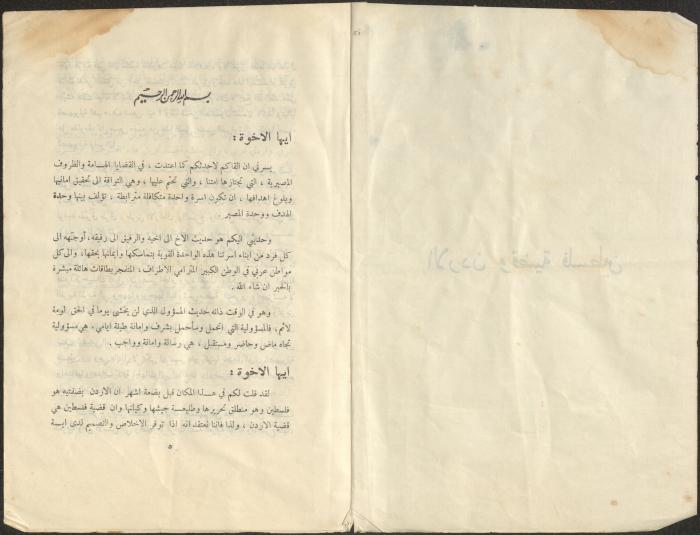 بسم الله الرحمن الرحيم
ايها الاخوة :
يسرني ان القاكم لاحدثكم كما اعتدت ، في القضايا الهامة والظروف
المصيرية ، التي تجتازها امتنا ، والتي تحتم عليها ، وهي التواقة الى تحقيق امانيها
وبلوغ اهدافها ، ان تكون اسرة واحدة متكافلة مترابطة ، تؤلف بينها وحدة
الهدف ووحدة المصير
وحديثي اليكم هو حديث الاخ الى اخيه والرفيق الى رفيقه، أوجهه الى
كل فرد من ابناء اسرتنا هذه الواحدة القوية بتماسكها وايمانها بحقها، والى كل
مواطن عربي في الوطن الكبير المترامي الاطراف، المتفجر بطاقات هائلة مبشرة
بالخير ان شاء الله .
وهو في الوقت ذاته حديث المسؤول الذي لن يخشى يوما في الحق لومة
لائم، فالمسؤولية التي اتحمل وسأحمل بشرف وامانة طيلة ايامي، هي مسؤولية
تجاه ماض وحاضر ومستقبل ، هي رسالة وامانة وواجب .
ايها الاخوة :
لقد قلت لكم في هذا المكان قبل بضعة اشهر ان الاردن بضفتيه هو
فلسطين وهو منطلق تحريرها وطليعة جيشها وكيانها وان قضية فلسطين هي
قضية الاردن ، ولذا فاننا نعتقد انه اذا توفر الاخلاص والتصميم لدى اية
٥
الاردن وقضية فلسطين